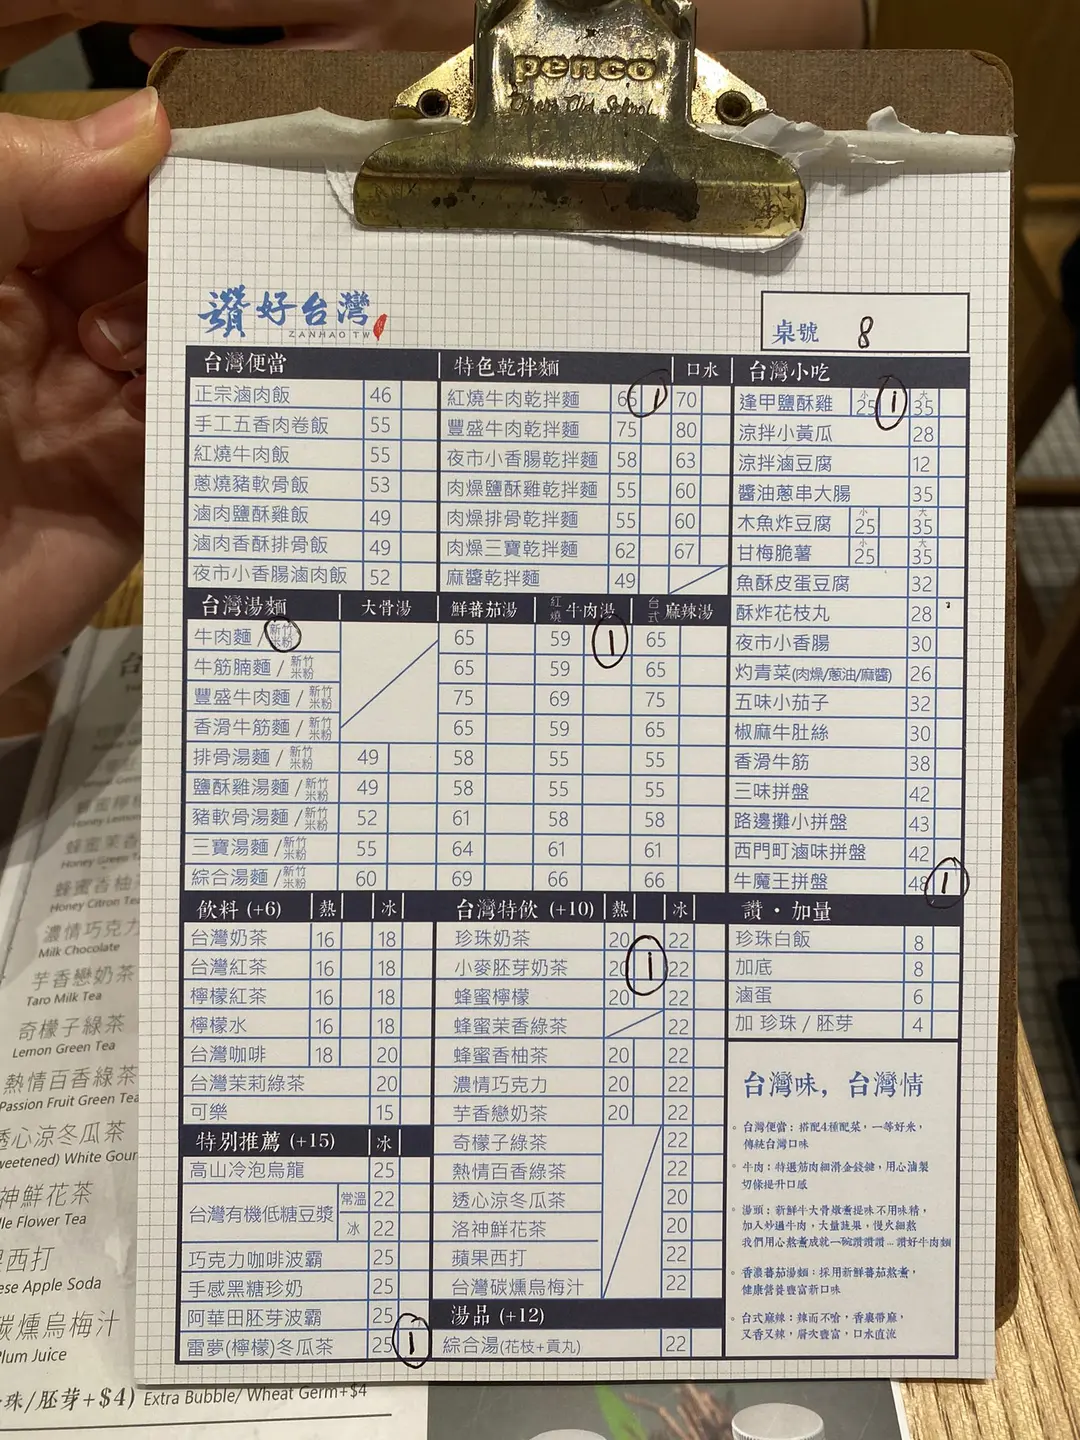 penco
讚好台灣
ZANHAO TW
桌號 8
台灣便當
正宗滷肉飯 46
手工五香肉卷飯 55
紅燒牛肉飯 55
蔥燒豬軟骨飯 53
滷肉鹽酥雞飯 49
滷肉香酥排骨飯 49
夜市小香腸滷肉飯 52
特色乾拌麵 口水
紅燒牛肉乾拌麵 65 1 70
豐盛牛肉乾拌麵 75 80
夜市小香腸乾拌麵 58 63
肉燥鹽酥雞乾拌麵 55 60
肉燥排骨乾拌麵 55 60
肉燥三寶乾拌麵 62 67
麻醬乾拌麵 49
台灣小吃
逢甲鹽酥雞 小25 1 大35
涼拌小黃瓜 28
涼拌滷豆腐 12
醬油蔥串大腸 35
木魚炸豆腐 小25 大35
甘梅脆薯 小25 大35
魚酥皮蛋豆腐 32
酥炸花枝丸 28
夜市小香腸 30
灼青菜(肉燥/蔥油/麻醬) 26
五味小茄子 32
椒麻牛肚絲 30
香滑牛筋 38
三味拼盤 42
路邊攤小拼盤 43
西門町滷味拼盤 42
牛魔王拼盤 48 1
台灣湯麵 大骨湯 鮮蕃茄湯 紅燒牛肉湯 台式麻辣湯
牛肉麵/新竹米粉 65 59 1 65
牛筋腩麵/新竹米粉 65 59 65
豐盛牛肉麵/新竹米粉 75 69 75
香滑牛筋麵/新竹米粉 65 59 65
排骨湯麵/新竹米粉 49 58 55 55
鹽酥雞湯麵/新竹米粉 49 58 55 55
豬軟骨湯麵/新竹米粉 52 61 58 58
三寶湯麵/新竹米粉 55 64 61 61
綜合湯麵/新竹米粉 60 69 66 66
飲料 (+6) 熱 冰
台灣奶茶 16 18
台灣紅茶 16 18
檸檬紅茶 16 18
檸檬水 16 18
台灣咖啡 18 20
台灣茉莉綠茶 20
可樂 15
特別推薦 (+15) 冰
高山冷泡烏龍 25
台灣有機低糖豆漿 常溫 22
冰 22
巧克力咖啡波霸 25
手感黑糖珍奶 25
阿華田胚芽波霸 25
雷夢(檸檬)冬瓜茶 25 1
台灣特飲 (+10) 熱 冰
珍珠奶茶 20 22
小麥胚芽奶茶 20 1 22
蜂蜜檸檬 20 22
蜂蜜茉香綠茶 22
蜂蜜香柚茶 20 22
濃情巧克力 20 22
芋香戀奶茶 20 22
奇檬子綠茶 22
熱情百香綠茶 22
透心涼冬瓜茶 20
洛神鮮花茶 20
蘋果西打 22
台灣碳燻烏梅汁 22
湯品 (+12)
綜合湯(花枝+貢丸) 22
讚・加量
珍珠白飯 8
加底 8
滷蛋 6
加 珍珠 / 胚芽 4
台灣味，台灣情
台灣便當：搭配4種配菜，一等好米，
傳統台灣口味
牛肉：特選筋肉細滑金錢腱，用心滷製
切條提升口感
湯頭：新鮮牛大骨燉熬提味不用味精，
加入炒過牛肉，大量蔬果，慢火細熬
我們用心熬煮成就一碗讚讚讚...讚好牛肉麵
香濃蕃茄湯麵：採用新鮮蕃茄熬煮，
健康營養豐富新口味
台式麻辣：辣而不嗆，香裏帶麻，
又香又辣，層次豐富，口水直流
Honey Lemon
Honey Green Te
蜂蜜香柚
Honey Citron Tea
濃情巧克力
Milk Chocolate
芋香戀奶茶
Taro Milk Tea
奇檬子綠茶
Lemon Green Tea
熱情百香綠茶
Passion Fruit Green Tea
透心涼冬瓜茶
weetened) White Gour
神鮮花茶
lle Flower Tea
西打
ese Apple Soda
碳燻烏梅汁
Plum Juice
珠/胚芽+$4) Extra Bubble/ Wheat Germ+$4